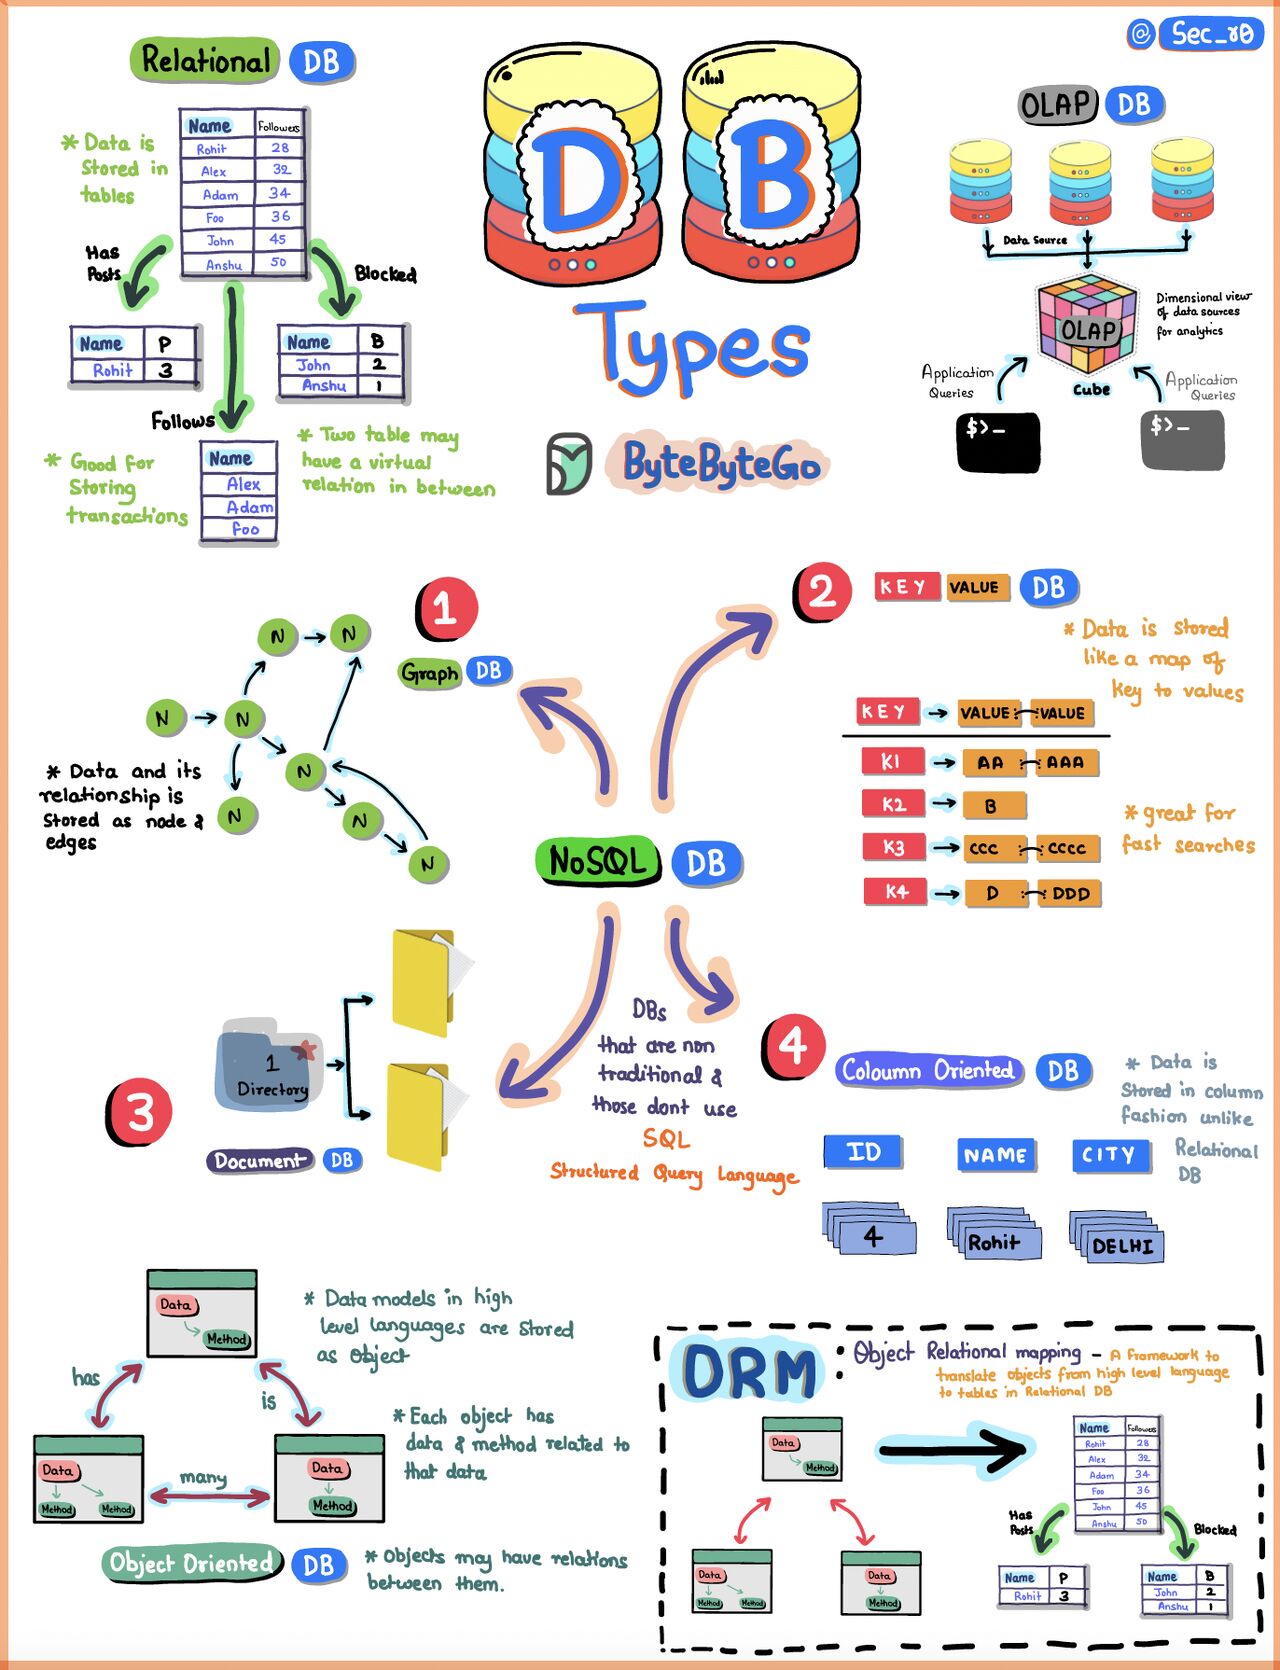 @ Sec_r0
Relational DB
* Data is
Stored in
tables
Name Followers
Rohit 28
Alex 32
Adam 34
Foo 36
John 45
Anshu 50
Has
Posts
Blocked
Name P
Rohit 3
Name B
John 2
Anshu 1
Follows
Name
Alex
Adam
foo
* Good for
Storing
transactions
* Two table may
have a virtual
relation in between
D B
Types
ByteByteGo
OLAP DB
Data Source
OLAP
Cube
Dimensional view
of data sources
for analytics
Application
Queries
Application
Queries
$>_
$>_
1
Graph DB
N N
N N
N
N
N
N
* Data and its
relationship is
Stored as node &
edges
2
KEY VALUE DB
* Data is stored
like a map of
key to values
KEY VALUE VALUE
K1 AA AAA
K2 B
K3 CCC CCCC
K4 D DDD
* great for
fast searches
NoSQL DB
DBs
that are non
traditional &
those dont use
SQL
Structured Query Language
3
1
Directory
Document DB
4
Coloumn Oriented DB
* Data is
Stored in column
fashion unlike
Relational
DB
ID NAME CITY
4 Rohit DELHI
Data
Method
has
is
many
Data
Method Method
Data
Method
* Data models in high
level languages are stored
as object
* Each object has
data & method related to
that data
Object Oriented DB
* Objects may have relations
between them.
ORM : Object Relational mapping - A framework to
translate objects from high level language
to tables in Relational DB
Data
Method
Data
Method Method
Data
Method
Name Followers
Rohit 28
Alex 32
Adam 34
Foo 36
John 45
Anshu 50
Has
Posts
Blocked
Name P
Rohit 3
Name B
John 2
Anshu 1